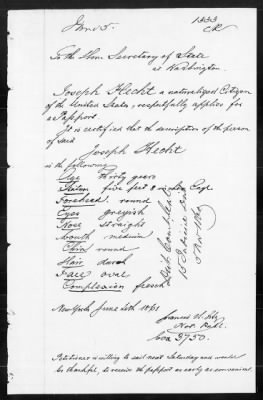 1333
To the Hon. Secretary of State
at Washington
Joseph Hecht a naturalized Citizen
of the United States, respectfully applies for
a Passport.
It is certified that the description of the person
of said
Joseph Hecht
is the following
Age thirty years
Stature five feet 8 inches Engl.
Forehead round
Eyes greyish
Nose straight
Mouth medium
Chin round
Hair dark
Face oval
Complexion fresh
New York June 1861
Not. Publ.
Box 3750.
Petitioner is willing to sail next Saturday and would
be thankful, to receive the passport as early as convenient